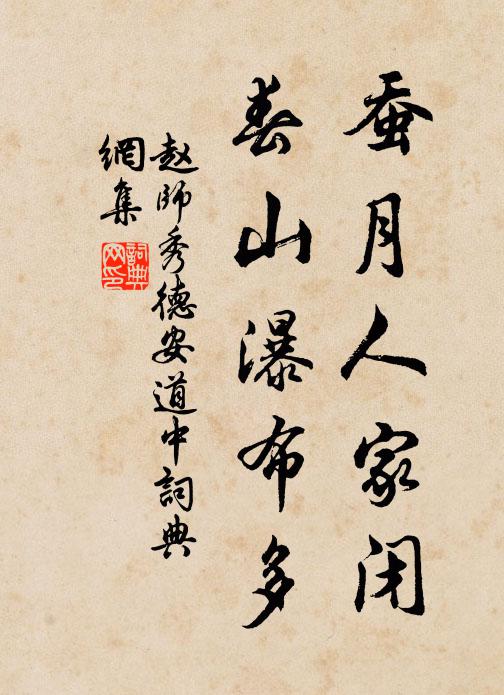 蚕月人家闭
春山瀑布多
赵師秀德安道中詞典
網集
詞典
网印